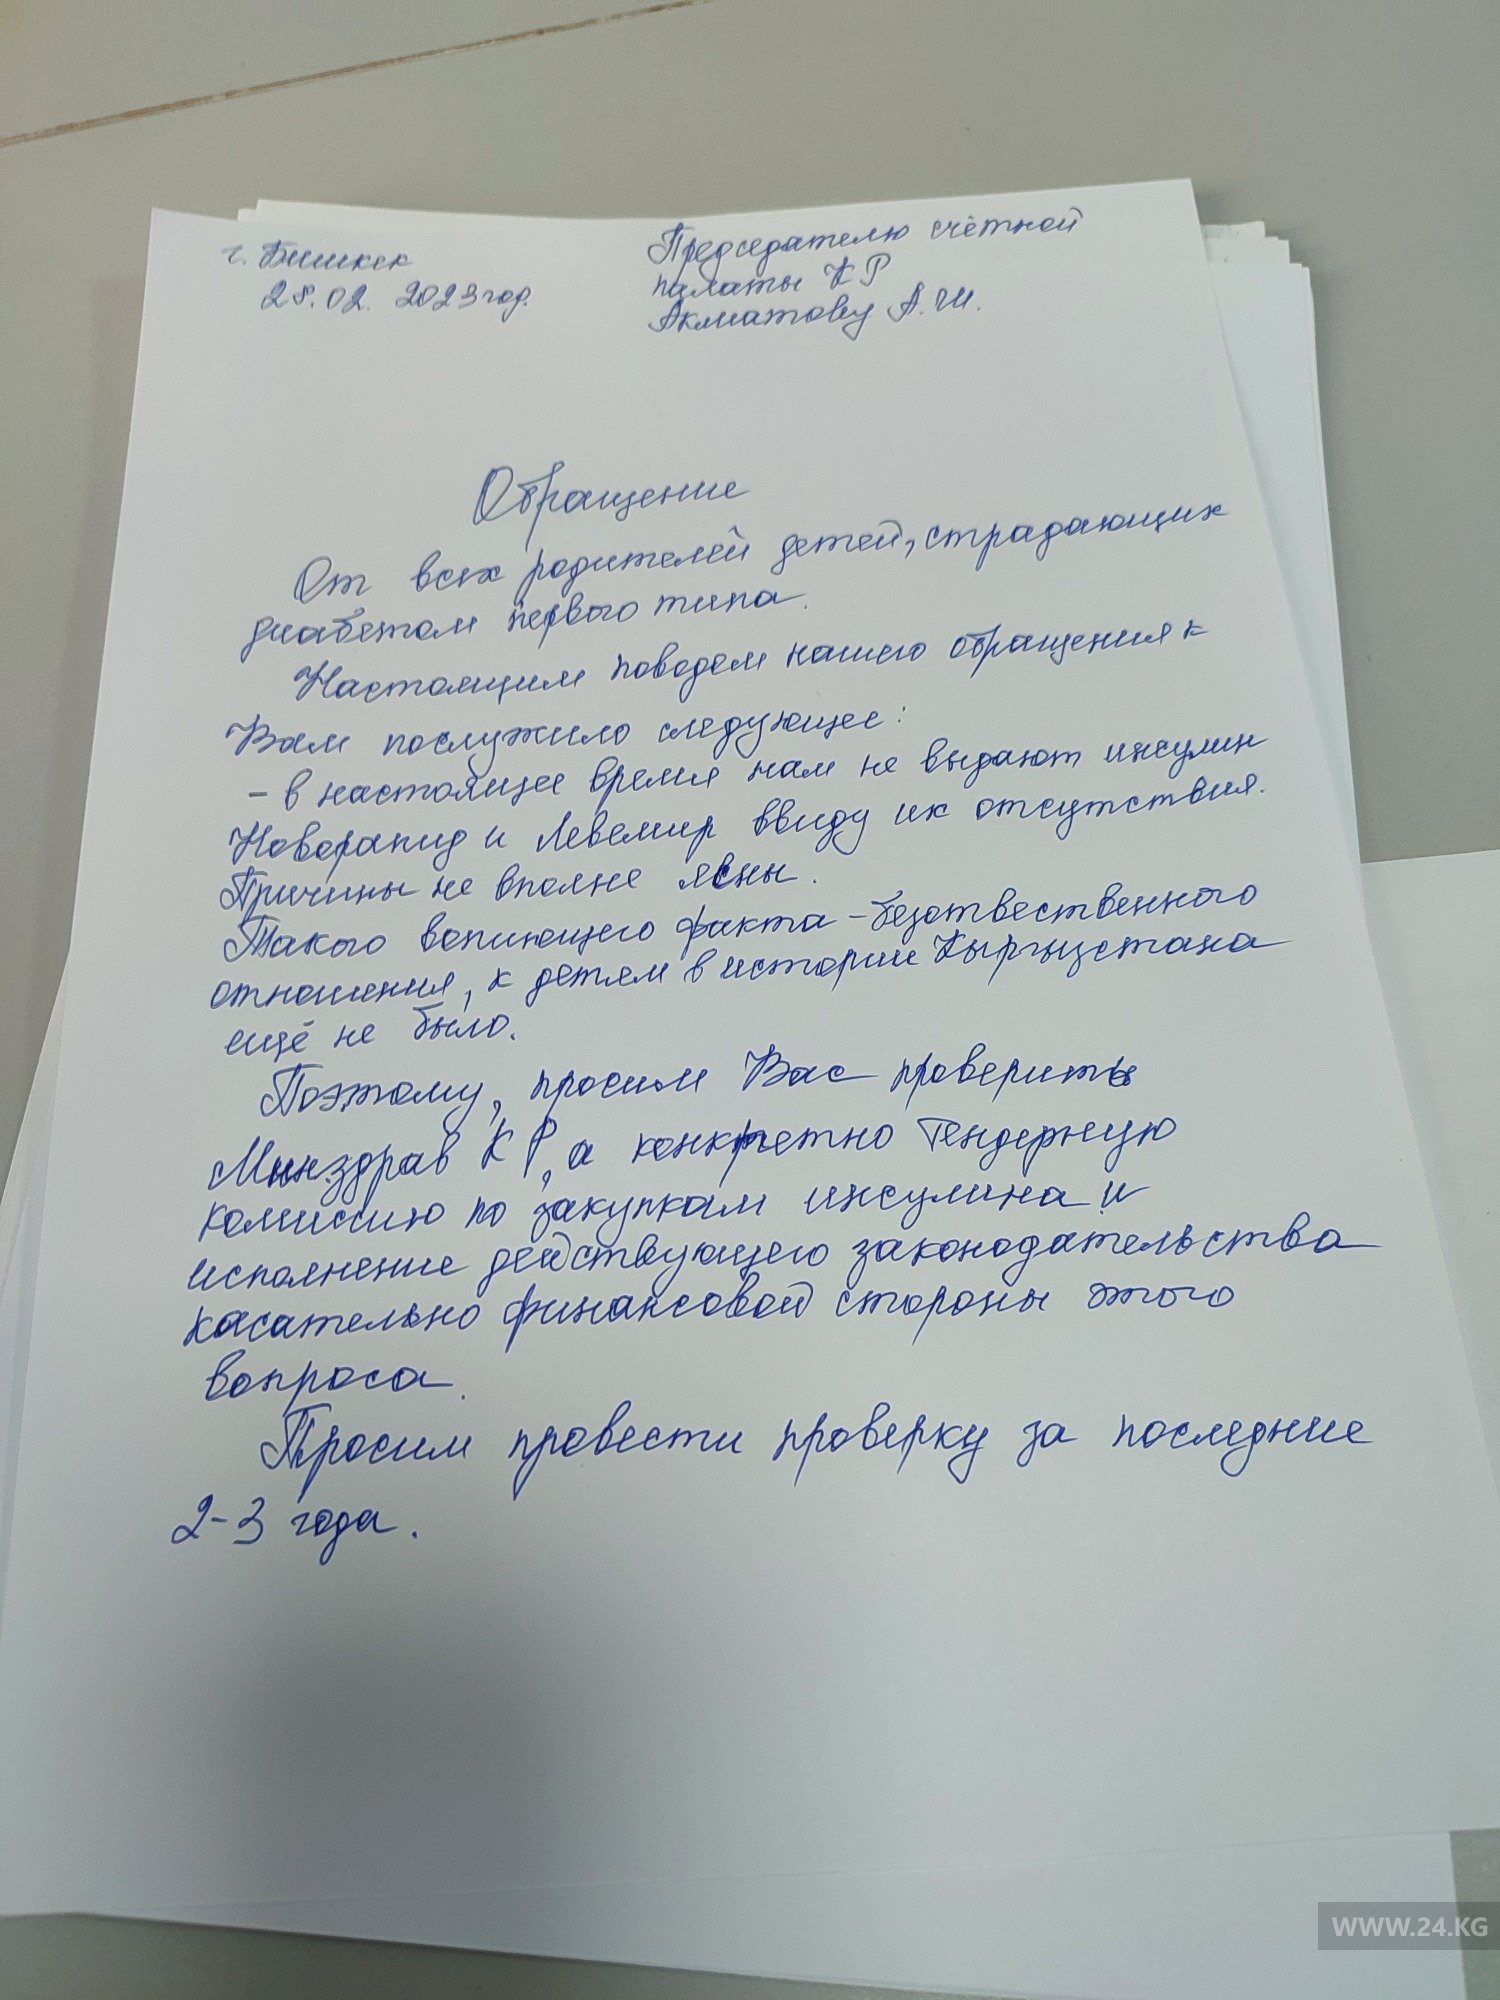 г. Бишкек
28.02. 2023 год.
Председателю счётной
палаты КР
Акматову А.Ш.
Обращение
От всех родителей детей, страдающих
диабетом первого типа.
Настоящим поводом нашего обращения к
Вам послужило следующее:
- в настоящее время нам не выдают инсулин
Новорапид и Левемир ввиду их отсутствия.
Причины не вполне ясны.
Такого вопиющего факта - безответственного
отношения, к детям в истории Кыргызстана
ещё не было.
Поэтому, просим Вас проверить
Минздрав КР, а конкретно тендерную
комиссию по закупкам инсулина и
исполнение действующего законодательства
касательно финансовой стороны этого
вопроса.
Просим провести проверку за последние
2-3 года.
WWW.24.KG